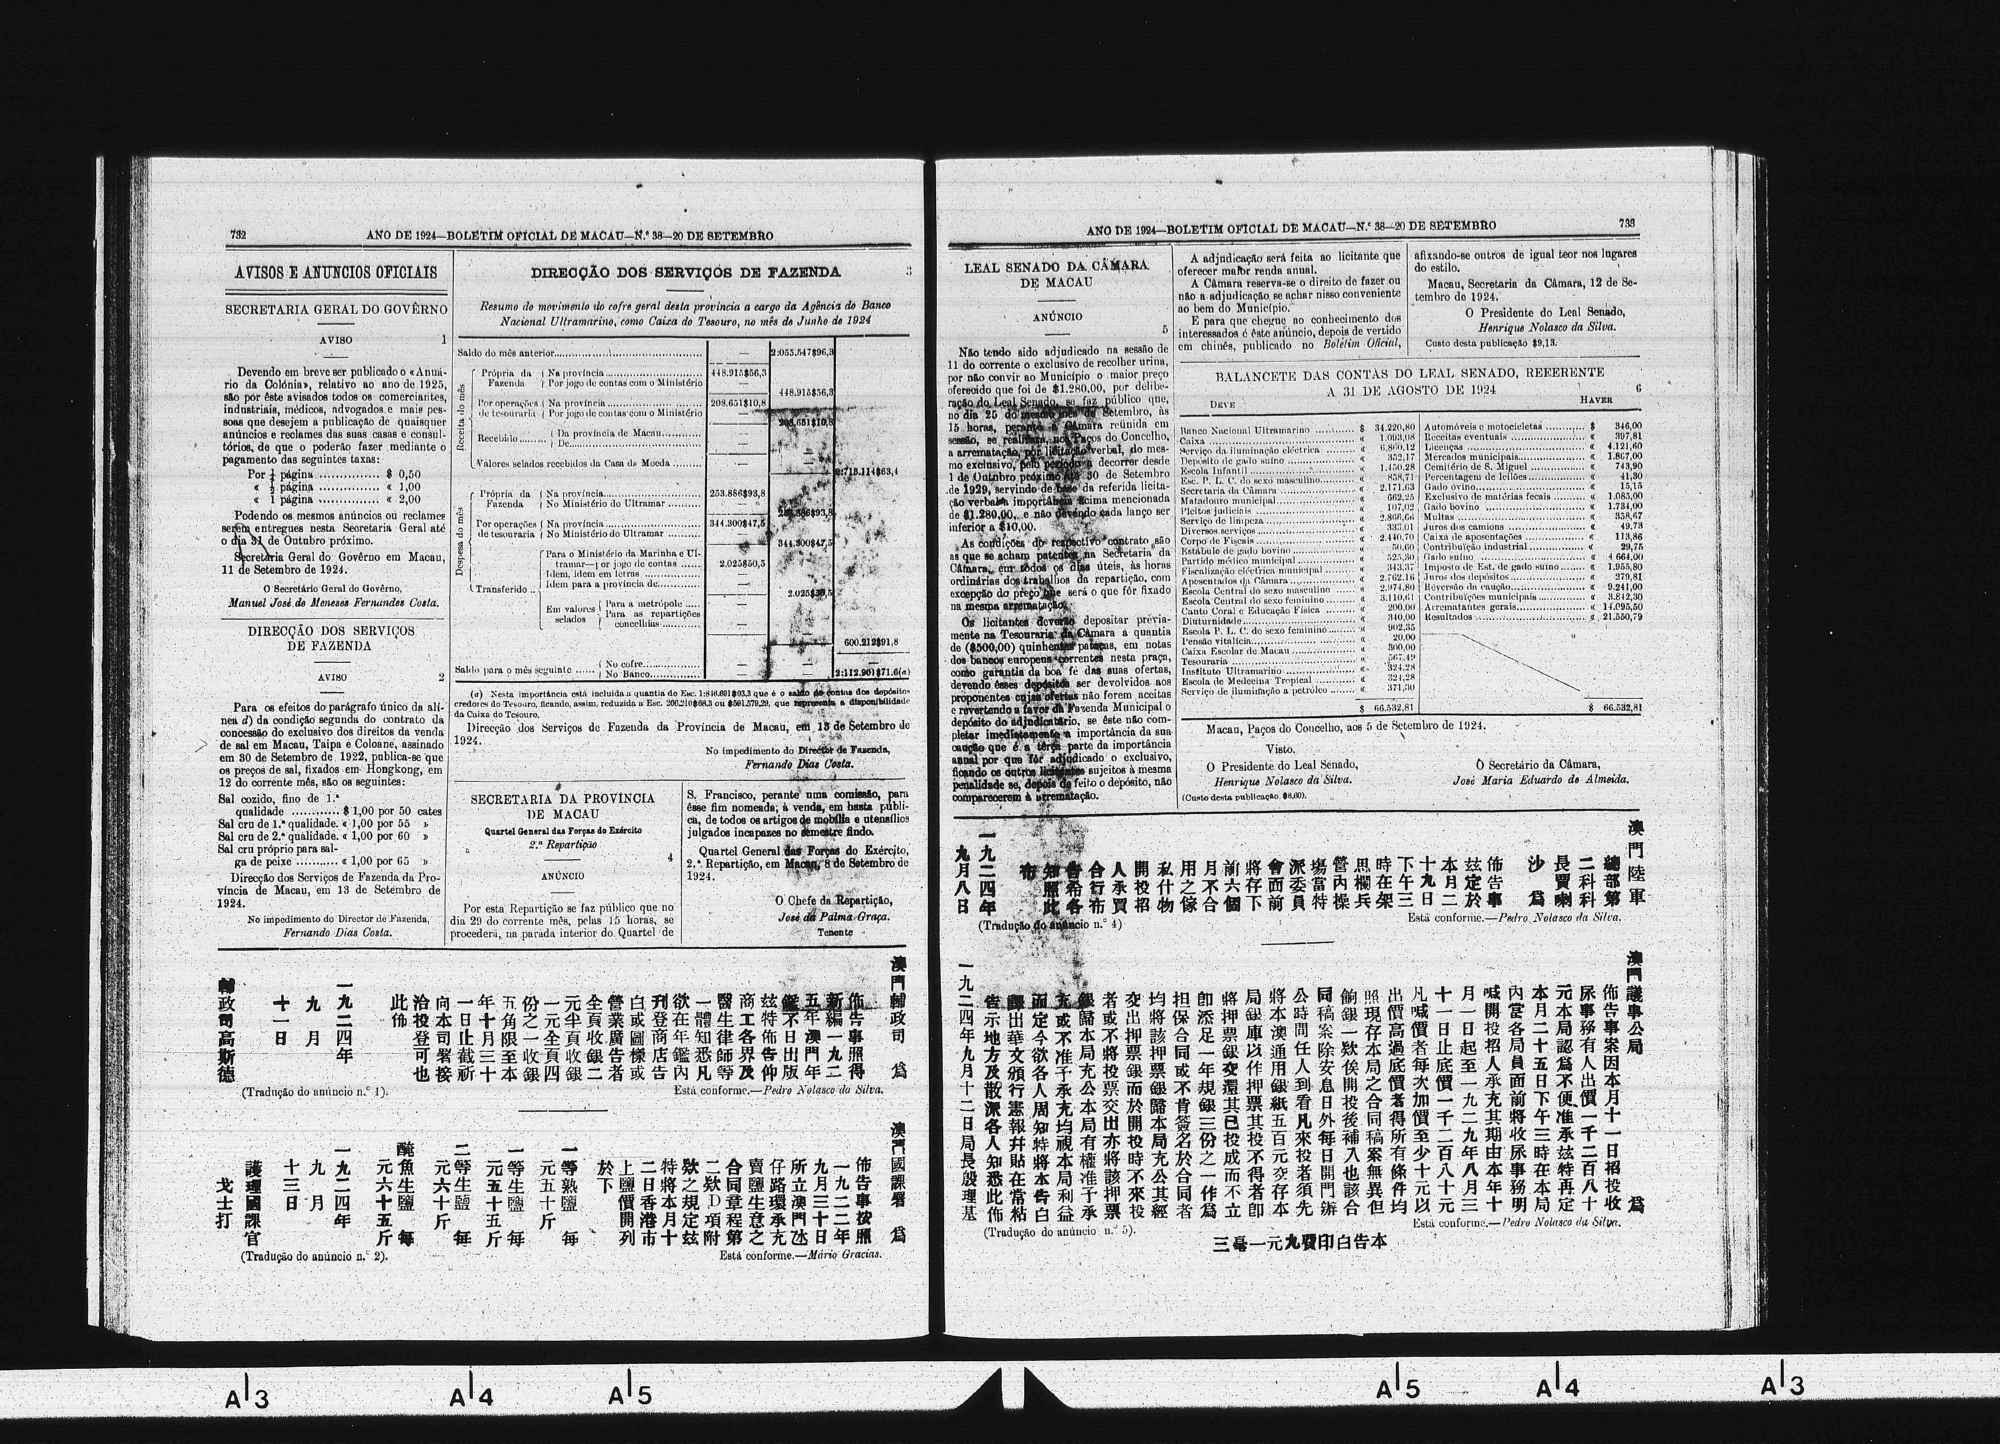 732
ANO DE 1924—BOLETIM OFICIAL DE MACAU—N.º 38—20 DE SETEMBRO
AVISOS E ANUNCIOS OFICIAIS
SECRETARIA GERAL DO GOVÊRNO
AVISO 1
Devendo em breve ser publicado o «Anuá-
rio da Colónia», relativo ao ano de 1925,
são por êste avisados todos os comerciantes,
industriais, médicos, advogados e mais pes-
soas que desejem a publicação de quaisquer
anúncios e reclames das suas casas e consul-
tórios, de que o poderão fazer mediante o
pagamento das seguintes taxas:
Por ¼ página ............... $ 0,50
« ½ página ............... « 1,00
« 1 página ............... « 2,00
Podendo os mesmos anúncios ou reclames
serem entregues nesta Secretaria Geral até
o dia 31 de Outubro próximo.
Secretaria Geral do Govêrno em Macau,
11 de Setembro de 1924.
O Secretário Geral do Govêrno,
Manuel José de Meneses Fernandes Costa.
DIRECÇÃO DOS SERVIÇOS
DE FAZENDA
AVISO 2
Para os efeitos do parágrafo único da alí-
nea d) da condição segunda do contrato da
concessão do exclusivo dos direitos da venda
de sal em Macau, Taipa e Coloane, assinado
em 30 de Setembro de 1922, publica-se que
os preços de sal, fixados em Hongkong, em
12 do corrente mês, são os seguintes:
Sal cozido, fino de 1.ª
qualidade ............ $ 1,00 por 50 cates
Sal cru de 1.ª qualidade. « 1,00 por 55 »
Sal cru de 2.ª qualidade. « 1,00 por 60 »
Sal cru próprio para sal-
ga de peixe ........... « 1,00 por 65 »
Direcção dos Serviços de Fazenda da Pro-
víncia de Macau, em 13 de Setembro de
1924.
No impedimento do Director de Fazenda,
Fernando Dias Costa.
DIRECÇÃO DOS SERVIÇOS DE FAZENDA 3
Resumo do movimento do cofre geral desta província a cargo da Agência do Banco
Nacional Ultramarino, como Caixa do Tesouro, no mês de Junho de 1924
Saldo do mês anterior — 2:055.547$96,3
Receita do mês
Própria da Fazenda
Na província 448.915$56,3
Por jogo de contas com o Ministério — 448.915$56,3
Por operações de tesouraria
Na província 208.651$10,8
Por jogo de contas com o Ministério — 208.651$10,8
Recebido
Da província de Macau —
De —
Valores selados recebidos da Casa de Moeda — 2:713.114$63,4
Despesa do mês
Própria da Fazenda
Na província 253.886$93,8
No Ministério do Ultramar — 253.886$93,8
Por operações de tesouraria
Na província 344.300$47,5
No Ministério do Ultramar — 344.300$47,5
Transferido
Para o Ministério da Marinha e Ul-
tramar—por jogo de contas 2.025$50,5
Idem, idem em letras —
Idem para a província de —
2.025$50,5
Em valores selados
Para a metrópole —
Para as repartições
concelhias —
600.212$91,8
Saldo para o mês seguinte
No cofre —
No Banco — 2:112.901$71.6(a)
(a) Nesta importância está incluída a quantia do Esc. 1:846.691$03,3 que é o saldo de contas dos depósitos
credores do Tesouro, ficando, assim, reduzida a Esc. 266.210$68,3 ou $591.579,29, que representa a disponibilidade
da Caixa do Tesouro.
Direcção dos Serviços de Fazenda da Província de Macau, em 13 de Setembro de
1924.
No impedimento do Director de Fazenda,
Fernando Dias Costa.
SECRETARIA DA PROVÍNCIA
DE MACAU
Quartel General das Forças do Exército
2.ª Repartição
4
ANÚNCIO
Por esta Repartição se faz público que no
dia 29 do corrente mês, pelas 15 horas, se
procederá, na parada interior do Quartel de
S. Francisco, perante uma comissão, para
êsse fim nomeada, à venda, em hasta públi-
ca, de todos os artigos de mobília e utensílios
julgados incapazes no semestre findo.
Quartel General das Forças do Exército,
2.ª Repartição, em Macau, 8 de Setembro de
1924.
O Chefe da Repartição,
José da Palma Graça.
Tenente
澳門輔政司 爲
佈告事照得
新編一九二
五年澳門年
鑑不日出版
茲特佈告仰
商工各界及
醫生律師等
一體知悉凡
欲在年鑑內
刊登商店告
白或圖樣或
營業廣告者
全頁收銀二
元半頁收銀
一元全頁四
份之一收銀
五角限至本
年十月三十
一日止截祈
向本司署接
洽投登可也
此佈
一九二四年
九月
十一日
輔政司高斯德
(Tradução do anúncio n.º 1).
Está conforme.—Pedro Nolasco da Silva.
澳門國課署 爲
佈告事按照
一九二二年
九月三十日
所立澳門氹
仔路環承充
賣鹽生意之
合同章程第
二欵D項附
欵之規定茲
特將本月十
二日香港市
上鹽價開列
於下
一等熟鹽 每
元五十斤
一等生鹽 每
元五十五斤
二等生鹽 每
元六十斤
醃魚生鹽 每
元六十五斤
一九二四年
九月
十三日
護理國課官
戈士打
(Tradução do anúncio n.º 2).
Está conforme.—Mário Gracias.
ANO DE 1924—BOLETIM OFICIAL DE MACAU—N.º 38—20 DE SETEMBRO
733
LEAL SENADO DA CÂMARA
DE MACAU
ANÚNCIO
5
Não tendo sido adjudicado na sessão de
11 do corrente o exclusivo de recolher urina,
por não convir ao Município o maior preço
oferecido que foi de $1.280,00, por delibe-
ração do Leal Senado, se faz público que,
no dia 25 do mesmo mês de Setembro, às
15 horas, perante a Câmara reùnida em
sessão, se realizará, nos Paços do Concelho,
a arrematação, por licitação verbal, do mes-
mo exclusivo, pelo período a decorrer desde
1 de Outubro próximo até 30 de Setembro
de 1929, servindo de base da referida licita-
ção verbal a importância acima mencionada
de $1.280,00, e não devendo cada lanço ser
inferior a $10,00.
As condições do respectivo contrato são
as que se acham patentes na Secretaria da
Câmara, em todos os dias úteis, às horas
ordinárias dos trabalhos da repartição, com
excepção do preço que será o que fôr fixado
na mesma arrematação.
Os licitantes deverão depositar prèvia-
mente na Tesouraria da Câmara a quantia
de ($500,00) quinhentas patacas, em notas
dos bancos europeus correntes nesta praça,
como garantia da boa fé das suas ofertas,
devendo êsses depósitos ser devolvidos aos
proponentes cujas ofertas não forem aceitas
e revertendo a favor da Fazenda Municipal o
depósito do adjudicatário, se êste não com-
pletar imediatamente a importância da sua
caução que é a têrça parte da importância
anual por que fôr adjudicado o exclusivo,
ficando os outros licitantes sujeitos à mesma
penalidade se, depois de feito o depósito, não
comparecerem à arrematação.
A adjudicação será feita ao licitante que
oferecer maior renda anual.
A Câmara reserva-se o direito de fazer ou
não a adjudicação se achar nisso conveniente
ao bem do Município.
E para que chegue ao conhecimento dos
interessados é êste anúncio, depois de vertido
em chinês, publicado no Boletim Oficial,
afixando-se outros de igual teor nos lugares
do estilo.
Macau, Secretaria da Câmara, 12 de Se-
tembro de 1924.
O Presidente do Leal Senado,
Henrique Nolasco da Silva.
Custo desta publicação $9,13.
BALANCETE DAS CONTAS DO LEAL SENADO, REFERENTE
A 31 DE AGOSTO DE 1924
6
DEVE
HAVER
Banco Nacional Ultramarino $ 34.220,80
Caixa « 1.093,08
Serviço da iluminação eléctrica « 6.860,12
Depósito de gado suíno « 352,17
Escola Infantil « 1.450,28
Esc. P. L. C. do sexo masculino « 858,71
Secretaria da Câmara « 2.171,63
Matadouro municipal « 662,25
Pleitos judiciais « 107,02
Serviço de limpeza « 2.866,66
Diversos serviços « 333,01
Corpo de Fiscais « 2.440,70
Estábulo de gado bovino « 50,60
Partido médico municipal « 525,30
Fiscalização eléctrica municipal « 343,37
Aposentados da Câmara « 2.762,16
Escola Central do sexo masculino « 2.974,80
Escola Central do sexo feminino « 3.110,61
Canto Coral e Educação Física « 200,00
Diuturnidade « 340,00
Escola P. L. C. do sexo feminino « 902,35
Pensão vitalícia « 20,00
Caixa Escolar de Macau « 300,00
Tesouraria « 567,49
Instituto Ultramarino « 324,28
Escola de Medecina Tropical « 324,28
Serviço de iluminação a petróleo « 371,30
$ 66.532,81
Automóveis e motocicletas $ 346,00
Receitas eventuais « 397,81
Licenças « 4.121,60
Mercados municipais « 1.867,00
Cemitério de S. Miguel « 743,90
Percentagem de leilões « 41,30
Gado ovino « 15,15
Exclusivo de matérias fecais « 1.085,00
Gado bovino « 1.734,00
Multas « 358,67
Juros dos camions « 49,73
Caixa de aposentações « 113,86
Contribuïção industrial « 29,75
Gado suíno « 4 664,00
Imposto de Est. de gado suíno « 1.955,80
Juros dos depósitos « 279,81
Reversão da caução « 9.241,00
Contribuïções municipais « 3.842,30
Arrematantes gerais « 14.095,50
Resultados « 21.550,79
$ 66.532,81
Macau, Paços do Concelho, aos 5 de Setembro de 1924.
Visto.
O Presidente do Leal Senado,
Henrique Nolasco da Silva.
(Custo desta publicação $8,60).
O Secretário da Câmara,
José Maria Eduardo de Almeida.
澳門陸軍
總部第
二科科
長賈喇
沙 爲
佈告事
茲定於
本月二
十九日
下午三
時在架
思欄兵
營內操
塲當特
派委員
會面前
將存下
前六個
月不合
用之傢
私什物
開投招
人承買
合行布
告希各
知照此
布
一九二四年
九月八日
(Tradução do anúncio n.º 4)
Está conforme.—Pedro Nolasco da Silva.
澳門議事公局 爲
佈告事案因本月十一日招投收
尿事務有人出價一千二百八十
元本局認爲不便准承茲特再定
本月二十五日下午三時在本局
內當各局員面前將收尿事務明
喊開投招人承充其期由本年十
月一日起至一九二九年八月三
十一日止底價一千二百八十元
凡喊價者每次加價至少十元以
出價高過底價者得所有條件均
照現存本局之合同稿案無異但
餉銀一欵俟開投後補入也該合
同稿案除安息日外每日開門辦
公時間任人到看凡來投者須先
將本澳通用銀紙五百元交存本
局銀庫以作押票其投不得者卽
將押票銀交還其已投成而不立
卽添足一年規銀三份之一作爲
担保合同或不肯簽名於合同者
均將該押票銀歸本局充公其經
交出押票銀而於開投時不來投
者或不將投票交出亦將該押票
銀歸本局充公本局有權准予承
充或不准予承充均視本局利益
而定今欲各人周知特將本告白
譯出華文頒行憲報幷貼在常粘
告示地方及散派各人知悉此佈
一九二四年九月十二日局長殷理基
(Tradução do anúncio n.º 5).
Está conforme.—Pedro Nolasco da Silva.
三毫一元九費印白告本
A3
A4
A5
A5
A4
A3